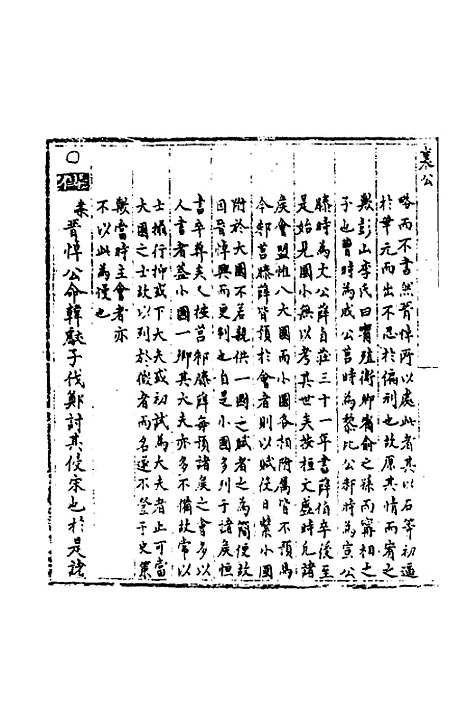 襄公
略而不書然晉悼所以處此者其以石等初逼
於華元而出不忍於偪利也故原其情而宥之
歟彭山李氏曰甯殖衛卿甯俞之孫而甯相之
子也曹時為成公莒時為黎比公邾時為宣公
滕時為文公薛自莊三十一年書薛伯卒後至
是始見國小無以考其世矣按桓文盛時凡諸
侯會盟惟八大國而小國各相附屬皆不預焉
今邾莒滕薛皆預於會者則以賦役日繁小國
附於大國不若親供一國之賦者之為簡便故
因晉悼興而更制也自是小國多列于諸侯恒
書卒葬矣人按莒邾滕薛每預諸侯之會多以
人書者蓋小國一卿其大夫亦多不備故常以
士攝行抑或下大夫或初試為大夫者止可當
大國之士故以列於微者而名遂不登于史策
歟當時主會者亦
不以此為慢也
○ 朱晉悼公命韓厥子伐鄭討其侵宋也於是諸